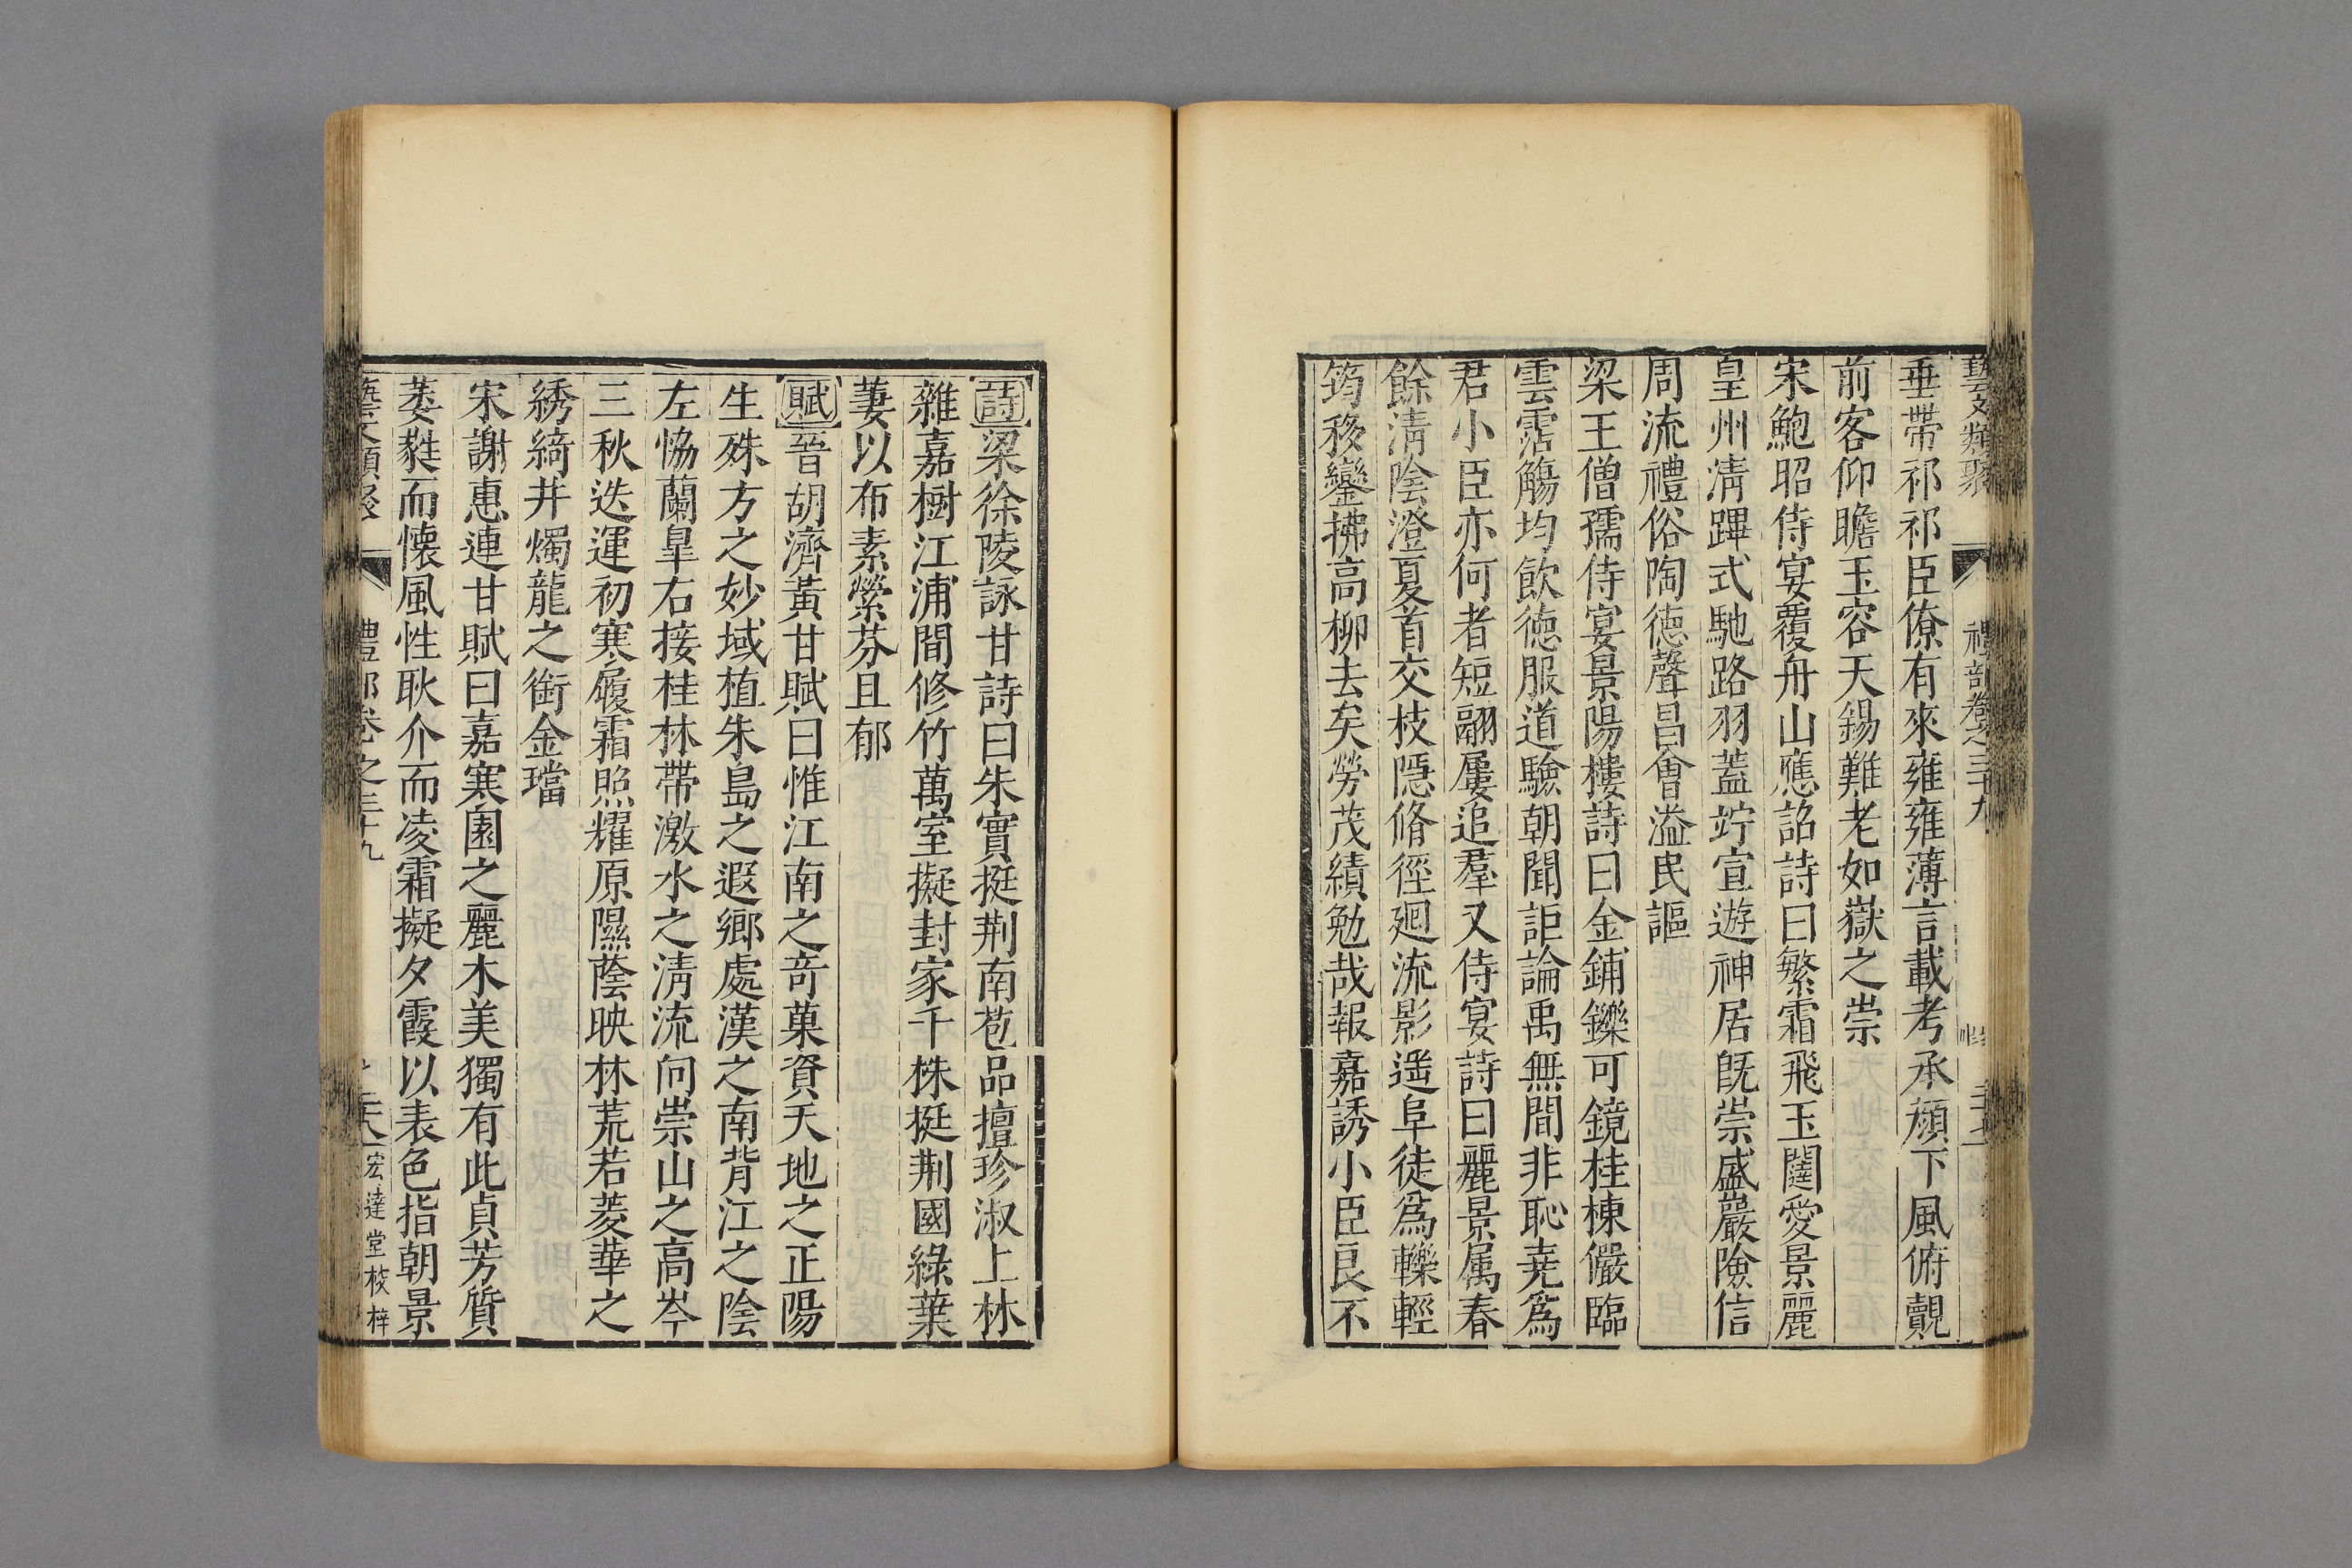 藝文類聚 禮部卷之三十九
垂帶祁祁臣僚有來雍雍薄言載考承顏下風俯覿
前客仰瞻玉容天錫難老如嶽之崇
宋鮑昭侍宴覆舟山應詔詩曰繁霜飛玉闥愛景麗
皇州淸蹕式馳路羽蓋竚宣遊神居旣崇盛嚴險信
周流禮俗陶德聲昌會溢民謳
梁王僧孺侍宴景陽樓詩曰金鋪鑠可鏡桂棟儼臨
雲霑觴均飲德服道驗朝聞詎論禹無間非恥堯爲
君小臣亦何者短翮屢追羣又侍宴詩曰麗景属春
餘淸陰澄夏首交枝隱脩徑廻流影遙阜徒爲轢輕
筠移鑾拂高柳去矣勞茂績勉哉報嘉誘小臣良不
詩梁徐陵詠甘詩曰朱實挺荆南苞品擅珍淑上林
雜嘉樹江浦間修竹萬室擬封家千株挺荆國綠葉
萋以布素縈芬且郁
賦晉胡濟黃甘賦曰惟江南之竒菓資天地之正陽
生殊方之妙域植朱島之遐鄉處漢之南背江之陰
左恊蘭臯右接桂林帶激水之淸流向崇山之高岑
三秋迭運初寒履霜照耀原隰蔭映林荒若菱華之
綉綺井燭龍之銜金璫
宋謝惠連甘賦曰嘉寒園之麗木美獨有此貞芳質
葳蕤而懷風性耿介而凌霜擬夕霞以表色指朝景
藝文類聚 禮部卷之三十九 宏達堂校梓